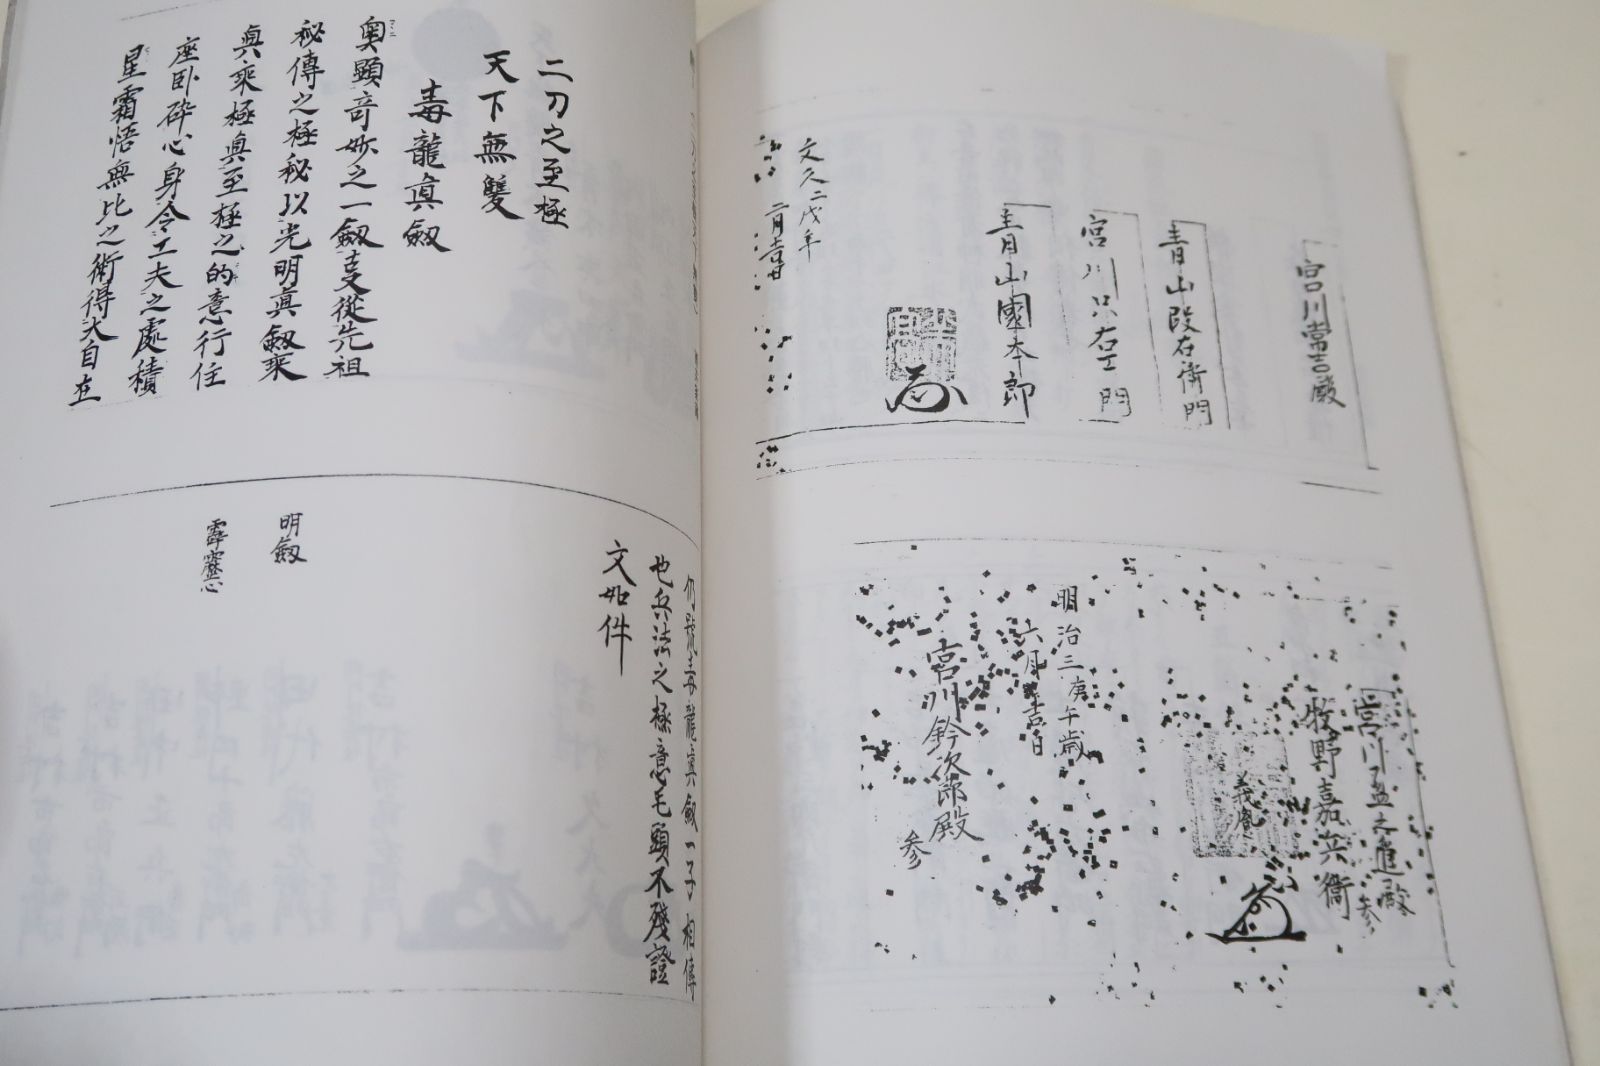 宮川常吉殿
青山段右衛門
宮川只右エ門
青山國太郎
文久二戌年
二月吉日
宮川孟之進殿
参
牧野嘉兵衛
義胤
明治三庚午歳
六月吉日
宮川鈴次郎殿
参
二刀之至極
天下無雙
毒龍真劔
奥顕奇妙之一劔是従先祖
秘傳之極秘以光明真劔乗
真乗極真至極之的意行住
座卧砕心身令工夫之處積
星霜悟無比之術得大自在
仍號毒龍真劔一子相傳
也兵法之極意毛頭不残證
文如件
明劔